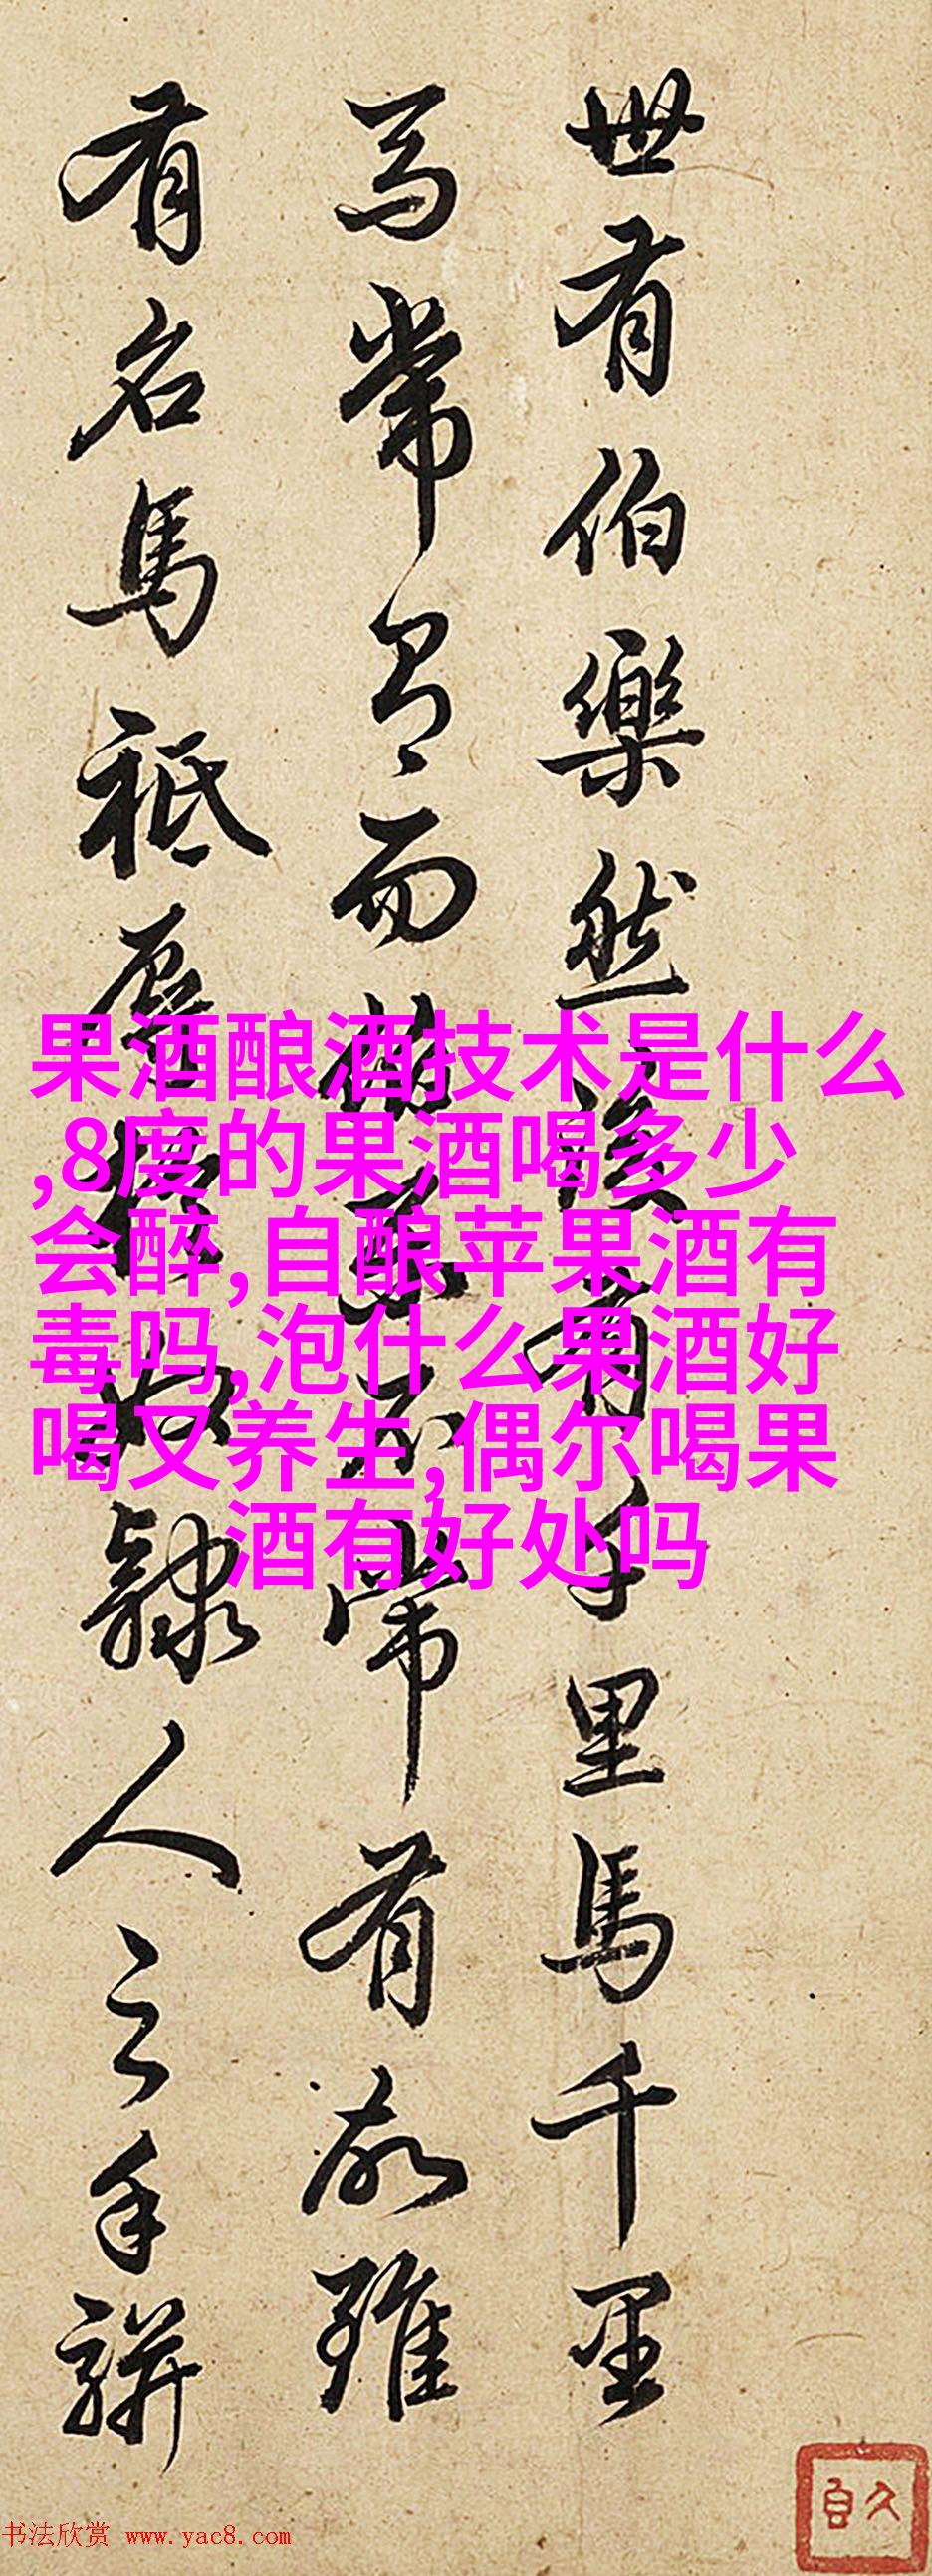 世有伯樂然後有千里馬千里
馬常有而伯樂不常有故雖
有名馬祗辱於奴隸人之手駢
果酒酿酒技术是什么
,8度的果酒喝多少
会醉,自酿苹果酒有
毒吗,泡什么果酒好
喝又养生,偶尔喝果
酒有好处吗
书法欣赏 www.yac8.com